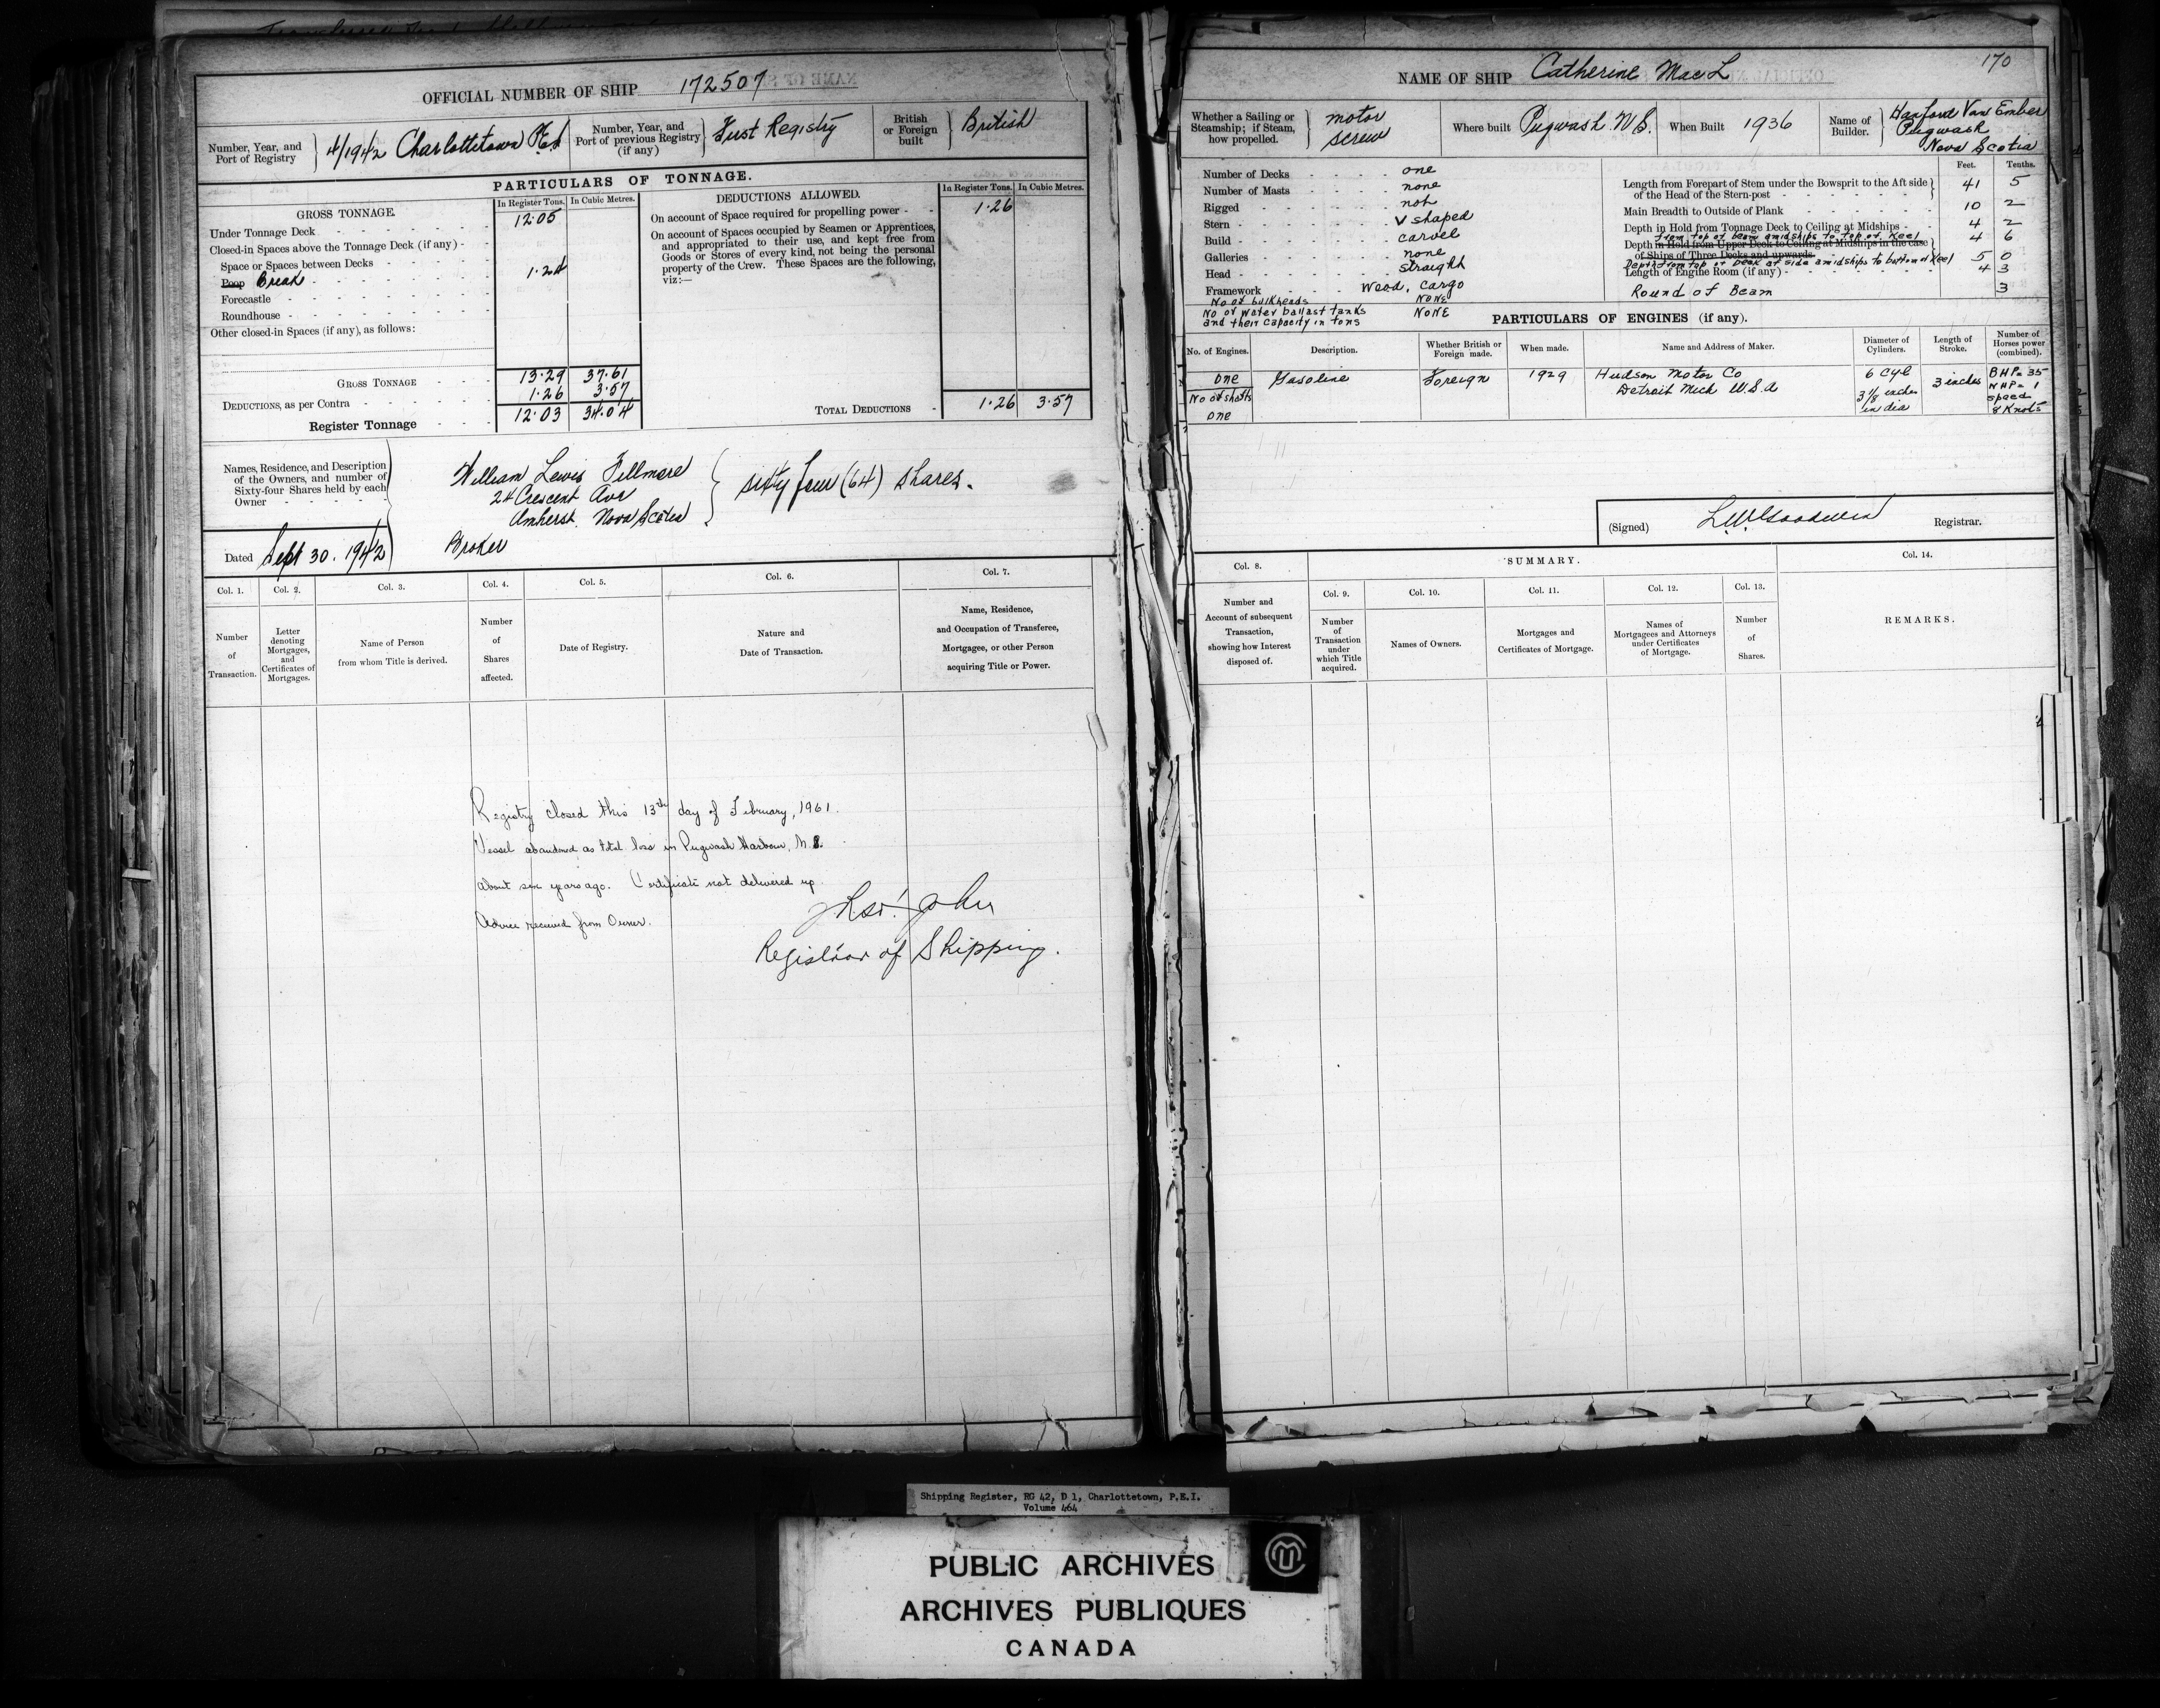 OFFICIAL NUMBER OF SHIP 172507
Number, Year, and
Port of Registry
4/1942 Charlottetown P.E.I
Number, Year, and
Port of previous Registry
(if any)
First Registry
British
or Foreign
built
British
PARTICULARS OF TONNAGE.
GROSS TONNAGE.
In Register Tons. In Cubic Metres.
Under Tonnage Deck - - - - - - 12.05
Closed-in Spaces above the Tonnage Deck (if any) - -
Space or Spaces between Decks - - - - 1.24
Poop Break - - - - - -
Forecastle - - - - - - -
Roundhouse - - - - - - -
Other closed-in Spaces (if any), as follows:
GROSS TONNAGE - - - 13.29 37.61
DEDUCTIONS, as per Contra - - - - - 1.26 3.57
Register Tonnage - - - 12.03 34.04
DEDUCTIONS ALLOWED.
In Register Tons. In Cubic Metres.
On account of Space required for propelling power - - 1.26
On account of Spaces occupied by Seamen or Apprentices,
and appropriated to their use, and kept free from
Goods or Stores of every kind, not being the personal
property of the Crew. These Spaces are the following,
viz:—
TOTAL DEDUCTIONS - 1.26 3.57
Names, Residence, and Description
of the Owners, and number of
Sixty-four Shares held by each
Owner - - - - -
William Lewis Fillmore
24 Crescent Ave
Amherst. Nova Scotia
Broker
sixty four (64) shares.
Dated Sept 30. 1942
Col. 1. Col. 2. Col. 3. Col. 4. Col. 5. Col. 6. Col. 7.
Number
of
Transaction.
Letter
denoting
Mortgages,
and
Certificates of
Mortgages.
Name of Person
from whom Title is derived.
Number
of
Shares
affected.
Date of Registry.
Nature and
Date of Transaction.
Name, Residence,
and Occupation of Transferee,
Mortgagee, or other Person
acquiring Title or Power.
Registry closed this 13th day of February, 1961.
Vessel abandoned as total loss in Pugwash Harbour, N.S.
about six years ago. Certificate not delivered up.
Advice received from Owner.
Registrar of Shipping.
NAME OF SHIP Catherine Mac L
170
Whether a Sailing or
Steamship; if Steam,
how propelled.
motor
screw
Where built Pugwash N.S.
When Built 1936
Name of
Builder.
Hanford Van Ember
Pugwash
Nova Scotia
Number of Decks - - - - one
Number of Masts - - - - none
Rigged - - - - - - not
Stern - - - - - - V shaped
Build - - - - - - carvel
Galleries - - - - - none
Head - - - - - - straight
Framework - - - Wood, cargo
No of bulkheads NONE
No of water ballast tanks NONE
and their capacity in tons
Feet. Tenths.
Length from Forepart of Stem under the Bowsprit to the Aft side
of the Head of the Stern-post - - - - - - 41 5
Main Breadth to Outside of Plank - - - - - - 10 2
Depth in Hold from Tonnage Deck to Ceiling at Midships - 4 2
from top of beam amidships to top of Keel
Depth in Hold from Upper Deck to Ceiling at Midships in the case 4 6
of Ships of Three Decks and upwards
Depth from top of Deck at side amidships to bottom of Keel 5 0
Length of Engine Room (if any) - - - - - 4 3
Round of Beam 3
PARTICULARS OF ENGINES (if any).
No. of Engines. Description. Whether British or
Foreign made. When made. Name and Address of Maker. Diameter of
Cylinders. Length of
Stroke. Number of
Horses power
(combined).
one Gasoline Foreign 1929 Hudson Motor Co
Detroit Mich U.S.A
6 Cyl
3 1/8 inches
in dia
3 inches
BHP = 35
NHP = 1
speed
8 Knots
No of shafts
one
(Signed) L.W. Goodwin Registrar.
SUMMARY.
Col. 8. Col. 9. Col. 10. Col. 11. Col. 12. Col. 13. Col. 14.
Number and
Account of subsequent
Transaction,
showing how Interest
disposed of.
Number
of
Transaction
under
which Title
acquired.
Names of Owners.
Mortgages and
Certificates of Mortgage.
Names of
Mortgagees and Attorneys
under Certificates
of Mortgage.
Number
of
Shares.
REMARKS.
Shipping Register, RG 42, D 1, Charlottetown, P.E.I.
Volume 464
PUBLIC ARCHIVES
ARCHIVES PUBLIQUES
CANADA